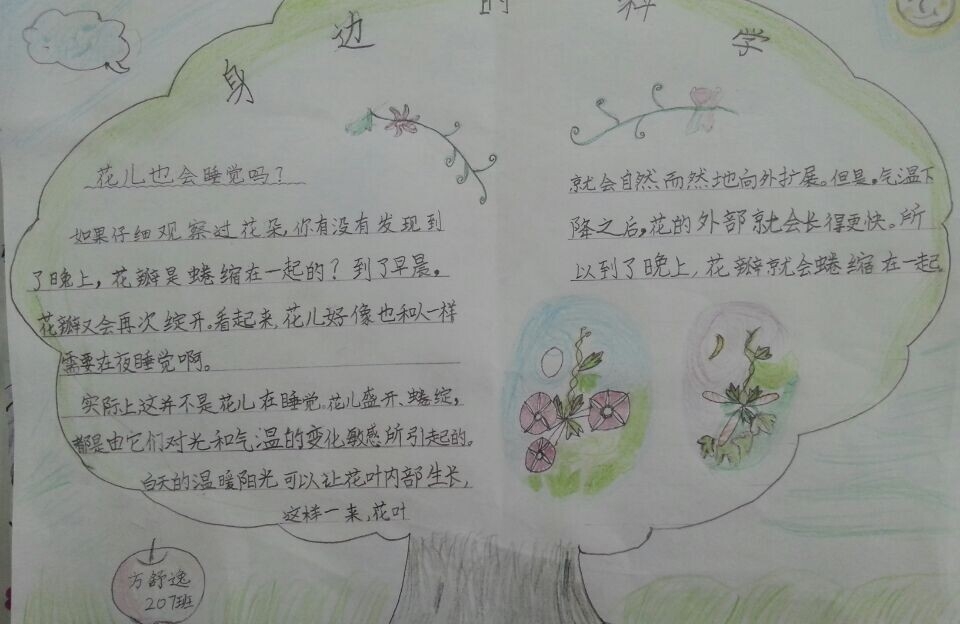 身边的科学
花儿也会睡觉吗?
如果仔细观察过花朵,你有没有发现到
了晚上,花瓣是蜷缩在一起的?到了早晨,
花瓣又会再次绽开。看起来,花儿好像也和人一样
需要在夜睡觉啊。
实际上这并不是花儿在睡觉。花儿盛开、蜷绽,
都是由它们对光和气温的变化敏感所引起的。
白天的温暖阳光可以让花叶内部生长,
这样一来,花叶
就会自然而然地向外扩展。但是,气温下
降之后,花的外部就会长得更快。所
以到了晚上,花瓣就会蜷缩在一起。
方舒逸
207班